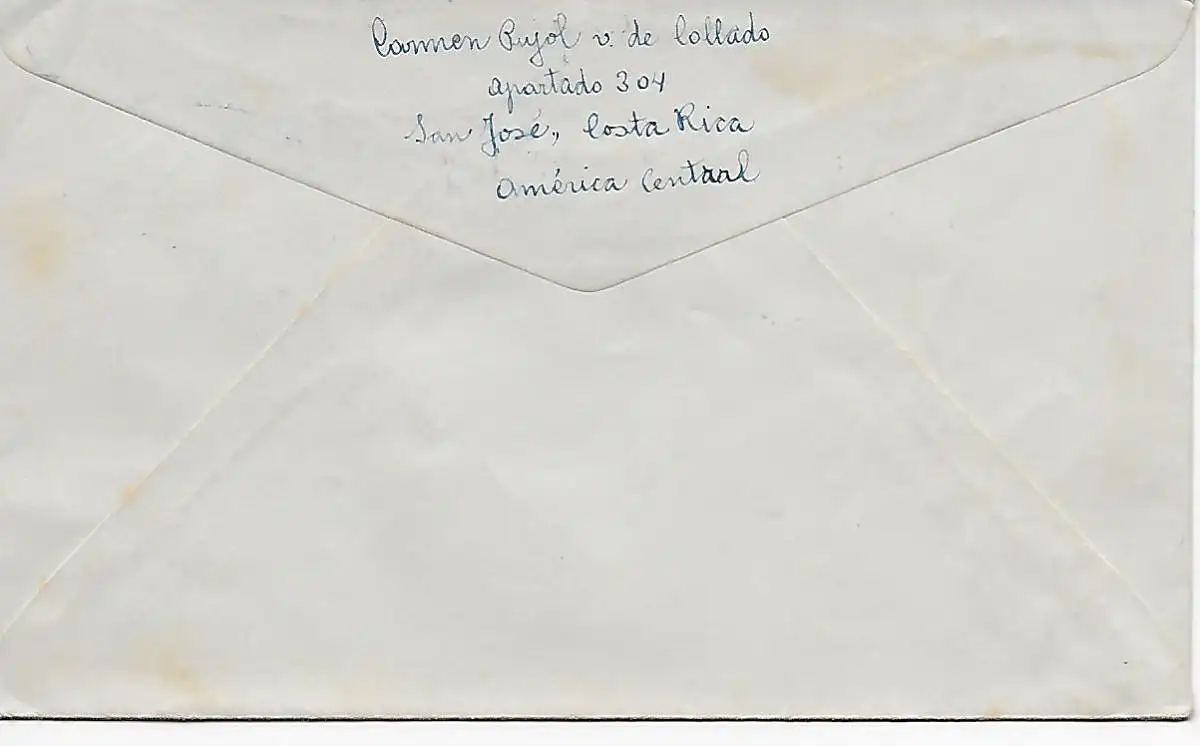 Carmen Pujol v. de Collado
apartado 304
San José, Costa Rica
América Central